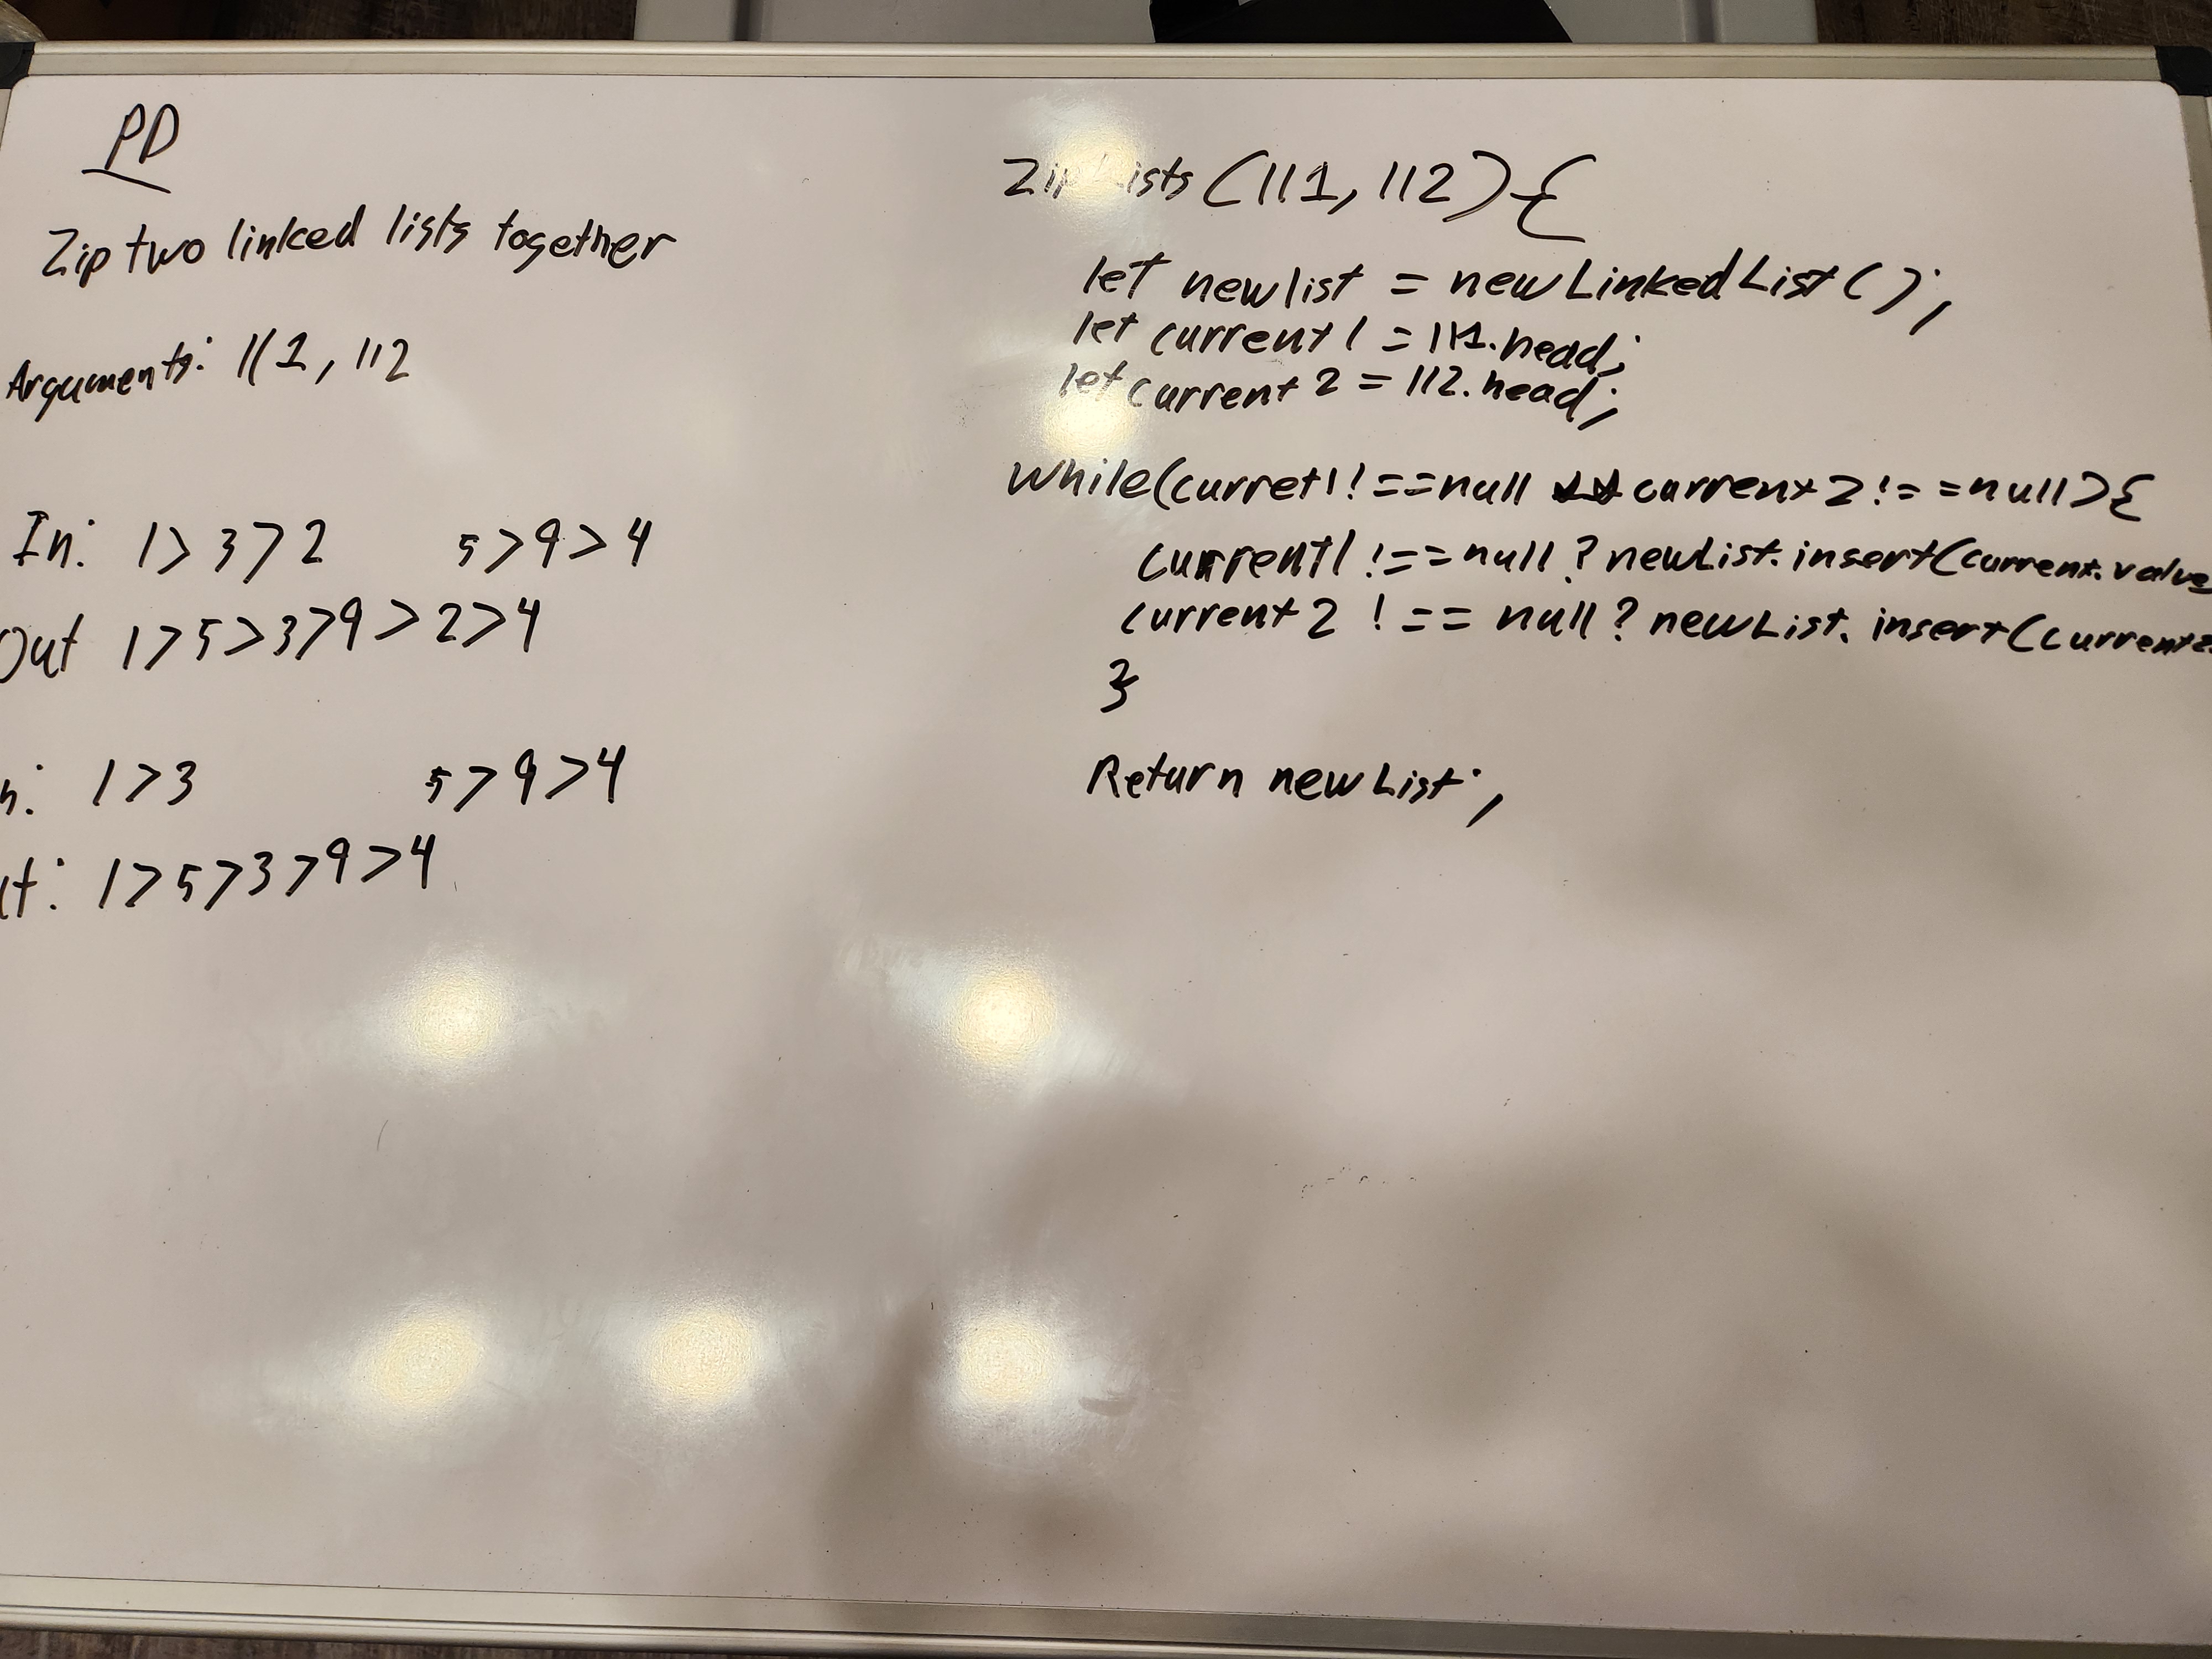 PD
Zip two linked lists together
Arguments: ll1, ll2
In: 1>3>2 5>9>4
Out 1>5>3>9>2>4
n: 1>3 5>9>4
t: 1>5>3>9>4
Lists(ll1, ll2){
let newlist = new LinkedList();
let current1 = ll1.head;
let current2 = ll2.head;
while(curret1!==null current2!==null){
current1!==null?newList.insert(current.value
current2!==null?newList.insert(current2
}
Return newList;